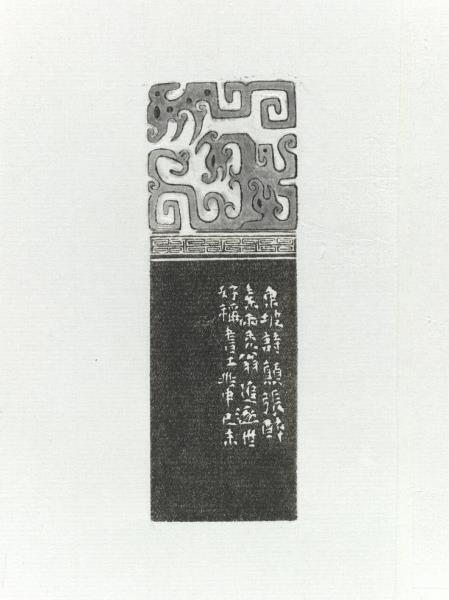 東坡詩顛張醉
素兩禿翁追逐世
好稱書工 己未